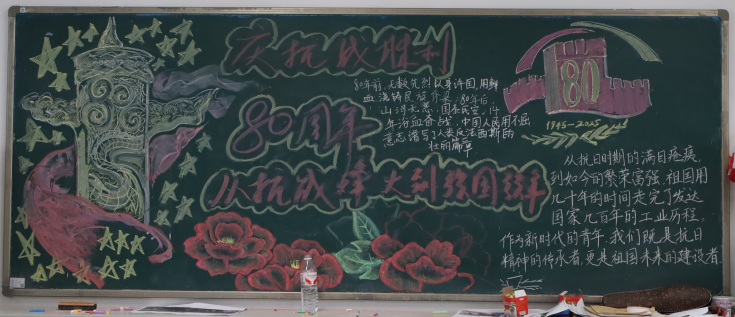 庆抗战胜利
80周年
从抗战烽火到强国强军
80年前,无数先烈以身许国,用鲜
血浇铸民族脊梁。80年后,
山河无恙,国泰民安,14
年浴血奋战,中国人民用不屈
意志谱写了人类反法西斯的
壮丽篇章
80
1945-2025
从抗日时期的满目疮痍,
到如今的繁荣富强,祖国用
几十年的时间走完了发达
国家几百年的工业历程,
作为新时代的青年,我们既是抗日
精神的传承者,更是祖国未来的建设者.